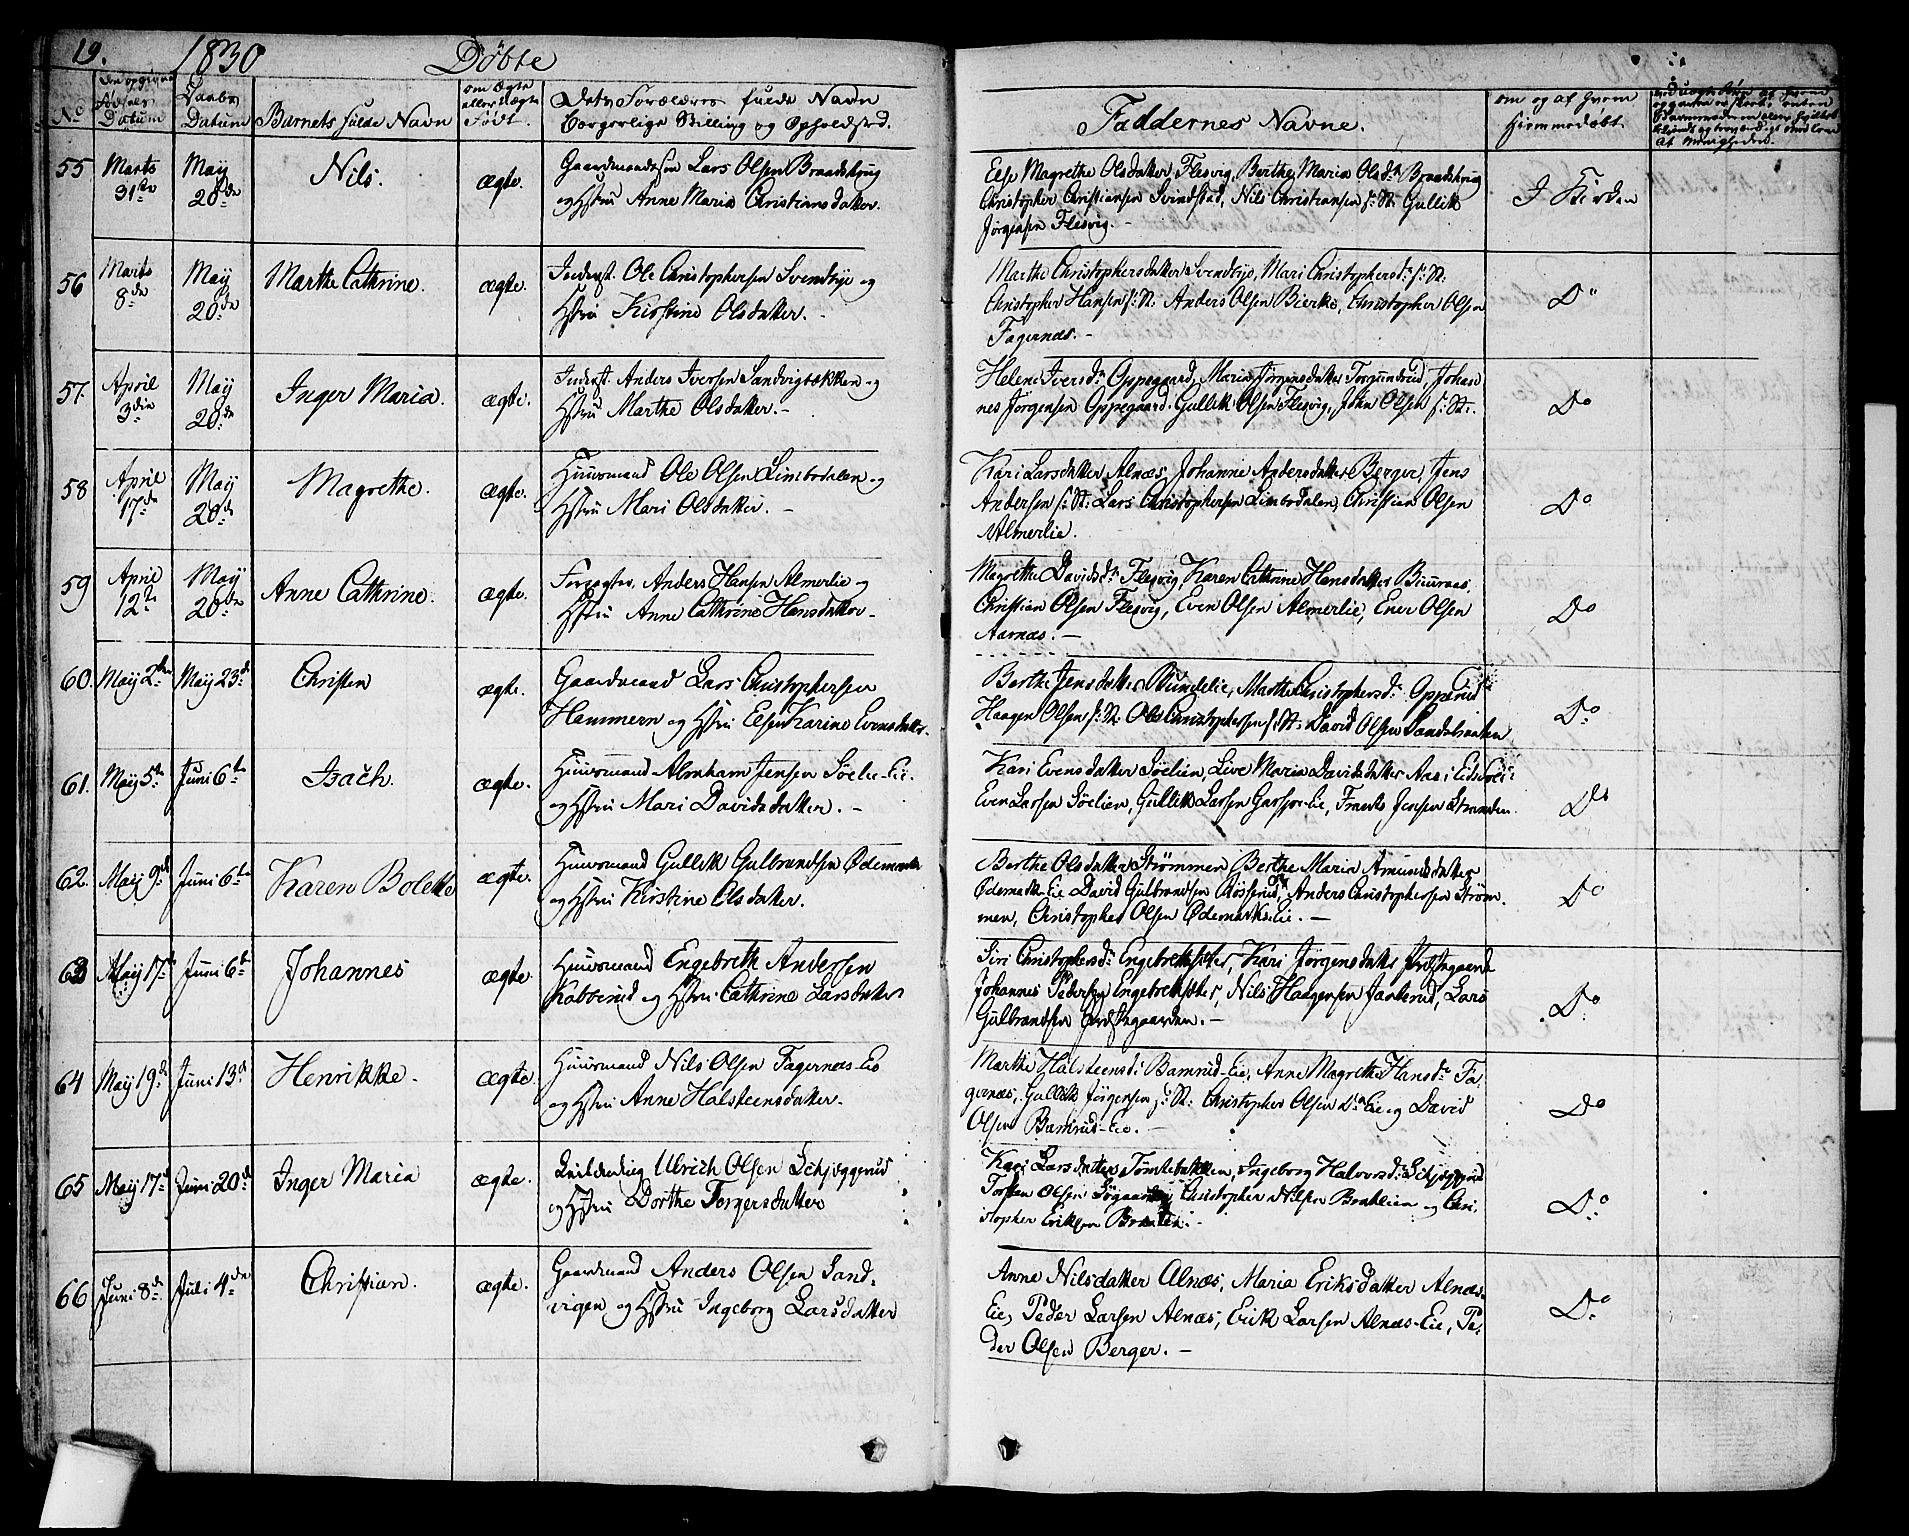 19. 1830 Döbte
No
Datum
Daabs Datum
Barnets fulde Navn
om Ægte eller Uægte Födt.
Dets Forældres fulde Navn
Borgerlige Stilling og Opholdsted.
Faddernes Navne.
om og af hvem Hjemmedöbt.
55 Marts 31te May 20de Nils. ægte.
Gaardmandssøn Lars Olsen Brandskrug
og Hstru Anne Maria Christiansdatter.
Else Magrethe Olsdatter Flesvig, Berthe Maria Olsdr Brandskrug
Christopher Christiansen Svindstad, Nils Christiansen s: St: Gullik
Jørgensen Flesvig. -
I Kirken
56 Marts 8de May 20de Marthe Cathrine. ægte.
Inderst. Ole Christophersen Svendbye og
Hstru Kirstine Olsdatter. -
Marthe Christophersdatter Svendbye, Mari Christophersdr s: St:
Christopher Hansen s: St. Anders Olsen Bierke, Christopher Olsen
Fagernæs. -
Do
57. April 3die May 20de Inger Maria. ægte.
Inderst. Anders Iversen Sandvigbækken og
Hstru Marthe Olsdatter. -
Helene Iversdr Oppegaard, Maria Jørgensdatter Torgundrud, Johan
nes Jørgensen Oppegaard. Gullik Olsen Flesvig, John Olsen s: St:.
Do
58 April 17de May 20de Magrethe. ægte.
Huusmand Ole Olsen Limbodalen og
Hstru Mari Olsdatter. -
Kari Larsdatter Alnæs, Johanne Andersdatter Berger, Jens
Andersen s: St: Lars Christophersen Limbodalen, Christian Olsen
Almerlie.
Do
59 April 12te May 20de Anne Cathrine. ægte.
Forpagter Anders Hansen Almerlie og
Hstru Anne Cathrine Hansdatter -
Magrethe Davidsdr Flesvig, Karen Cathrine Hansdatter Buuraas
Christian Olsen Flesvig, Even Olsen Almerlie, Ener Olsen
Aarnæs. -
Do
60. May 2den May 23de Christen ægte.
Gaardmand Lars Christophersen
Hammern og Hstru Else Karine Evensdatter.
Berthe Jensdatter Rundelie, Marthe Christophersdr Opperud
Haagen Olsen s: St. Ole Christophersen s: St: David Olsen Sandsbraaten
Do
61. May 5te Juni 6te Isach. ægte.
Huusmand Abraham Jensen Søelie-Eie.
og Hstru Mari Davidsdatter. -
Kari Evensdatter Søelien, Live Maria Davidsdatter Aas i Eidsvol
Even Larsen Søelien, Gullik Larsen Garsjøe-Eie, Frants Jensen Stranden.
Do
62. May 9de Juni 6te Karen Bolette ægte.
Huusmand Gullik Gulbrandsen Ødemark
og Hstru Kirstine Olsdatter.
Berthe Olsdatter Strømmen, Berthe Maria Amundsdatter
Ødemark-Eie David Gulbrandsen Røsserud, Anders Christophersen Strøm-
men, Christopher Olsen Ødemarks-Eie. -
Do
63 May 17de Juni 6te Johannes ægte.
Huusmand Engebreth Andersen
Kabberud og Hstru Cathrine Larsdatter
Siri Christophersdr Engebrethsæter, Kari Jørgensdatter Prestegaarde
Johannes Pedersen Engebrethsæter, Nils Haagensen Janterud, Lars
Gulbrandsen Prestegaarden. -
Do
64 May 19de Juni 13de Henrikke. ægte
Huusmand Nils Olsen Fagernæs Eie
og Hstru Anne Halsteensdatter.
Marthe Halsteensdr Bamrud-Eie, Anne Magrethe Hansdr Fa-
gernæs, Gullik Jørgensen s: St: Christopher Olsen Ds Eie og David
Olsen Bamrud-Eie. -
Do
65 May 17de Juni 20de Inger Maria ægte.
Ulrich Olsen Schjøggerud
og Hstru Dorthe Torgersdatter
Kari Larsdatter Tomtebakken, Ingeborg Halvorsdr Schjøggerud
Torsten Olsen Søgaarden, Christopher Nilsen Brakelien og Chri-
stopher Eriksen Brakelien. -
Do
66 Juni 8de Juli 4de Christian. ægte.
Gaardmand Anders Olsen Sand-
vigen og Hstru Ingeborg Larsdatter
Anne Nilsdatter Alnæs, Maria Eriksdatter Alnæs-
Eie, Peder Larsen Alnæs, Erik Larsen Alnæs-Eie, Pe-
der Olsen Berger. -
Do